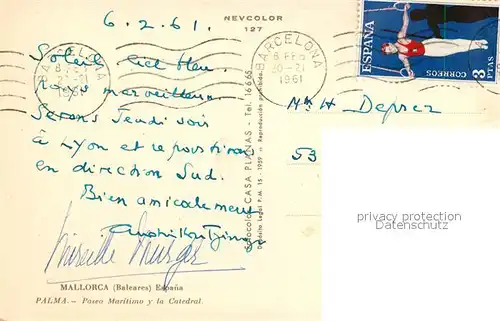 6.2.61.
NEVCOLOR
127
Soleil, ciel bleu.
Tout merveilleux
Serons Jeudi soir
à Lyon et repartirons
en direction Sud.
Bien amicalement
MALLORCA (Baleares) España
PALMA. - Paseo Marítimo y la Catedral.
Fotocolor CASA PLANAS - Tel. 16665
Depósito Legal P.M. 15 - 1959 Reproducción prohibida.
BARCELONA
1961
BARCELONA
8 FEB
20-21
1961
ESPAÑA
CORREOS
3 PTAS
H Deprez
53
privacy protection
copyright protection